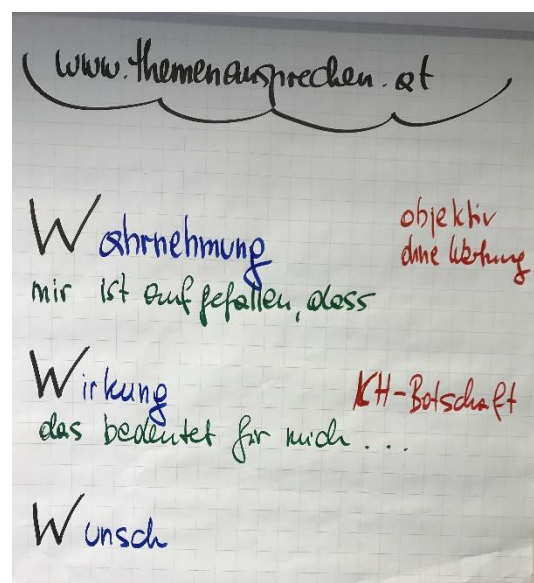 www.themenansprechen.at
Wahrnehmung
objektiv
ohne Wertung
mir ist aufgefallen, dass
Wirkung
ICH-Botschaft
das bedeutet für mich ...
Wunsch